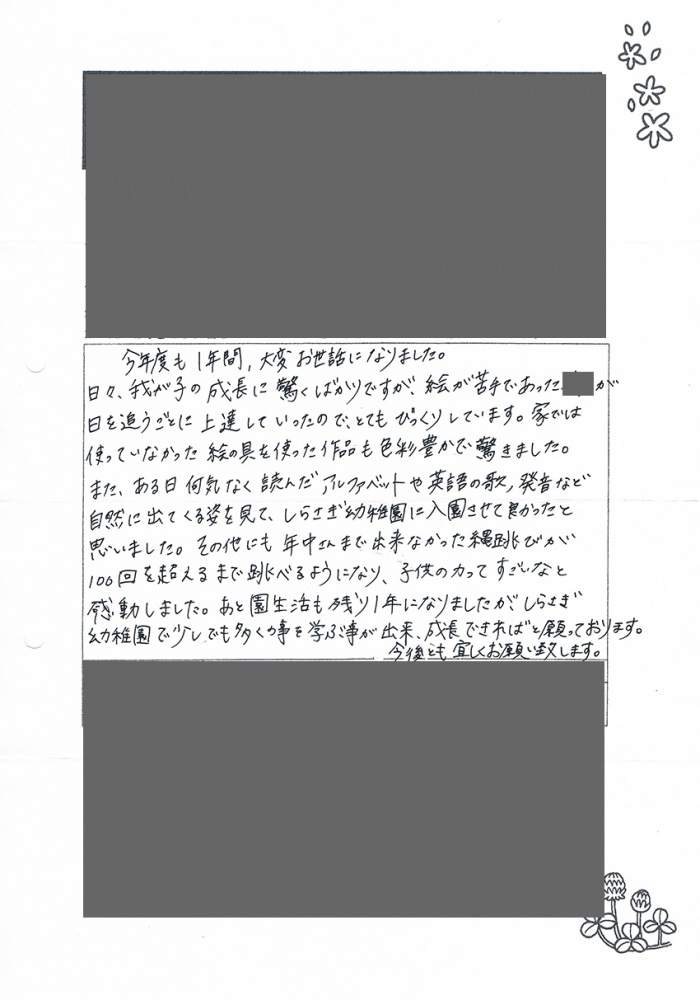 今年度も1年間,大変お世話になりました。
日々、我が子の成長に驚くばかりですが、絵が苦手であったが
日を追うごとに上達していったので、とてもびっくりしています。家では
使っていなかった絵の具を使った作品も色彩豊かで驚きました。
また、ある日何気なく読んだアルファベットや英語の歌,発音など
自然に出てくる姿を見て、しらさぎ幼稚園に入園させて良かったと
思いました。その他にも年中さんまで出来なかった縄跳びが
100回を超えるまで跳べるようになり、子供の力ってすごいなと
感動しました。あと園生活も残り1年になりましたが、しらさぎ
幼稚園で少しでも多くの事を学ぶ事が出来、成長できればと願っております。
今後とも宜しくお願い致します。